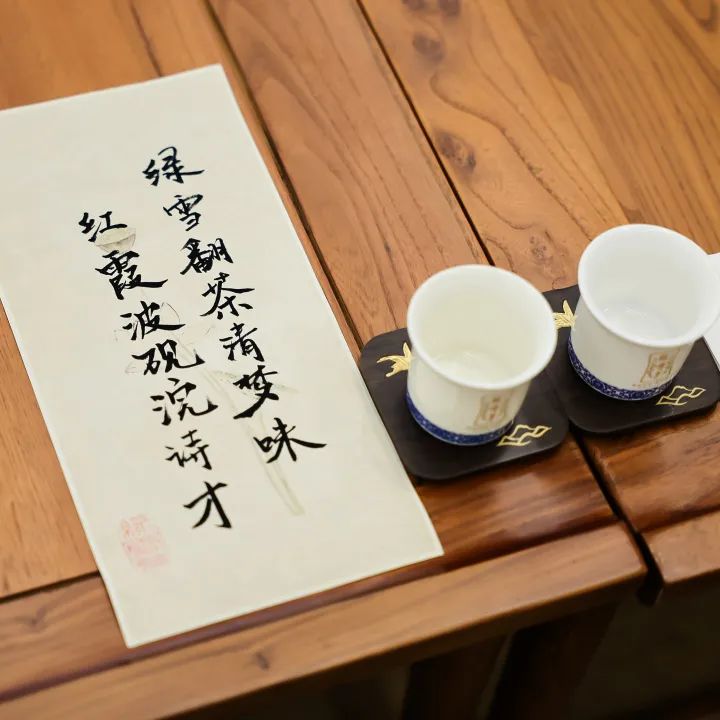 绿雪翻茶清梦味
红霞波砚浣诗才